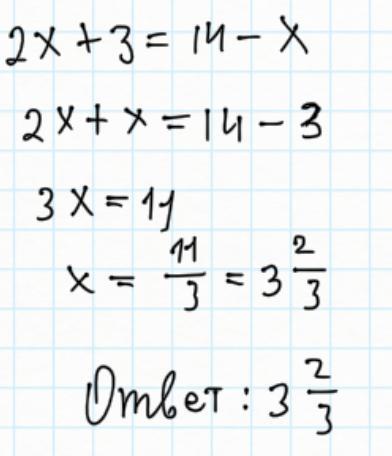 2x + 3 = 14 - x
2x + x = 14 - 3
3x = 11
x = 11/3 = 3 2/3
Ответ: 3 2/3